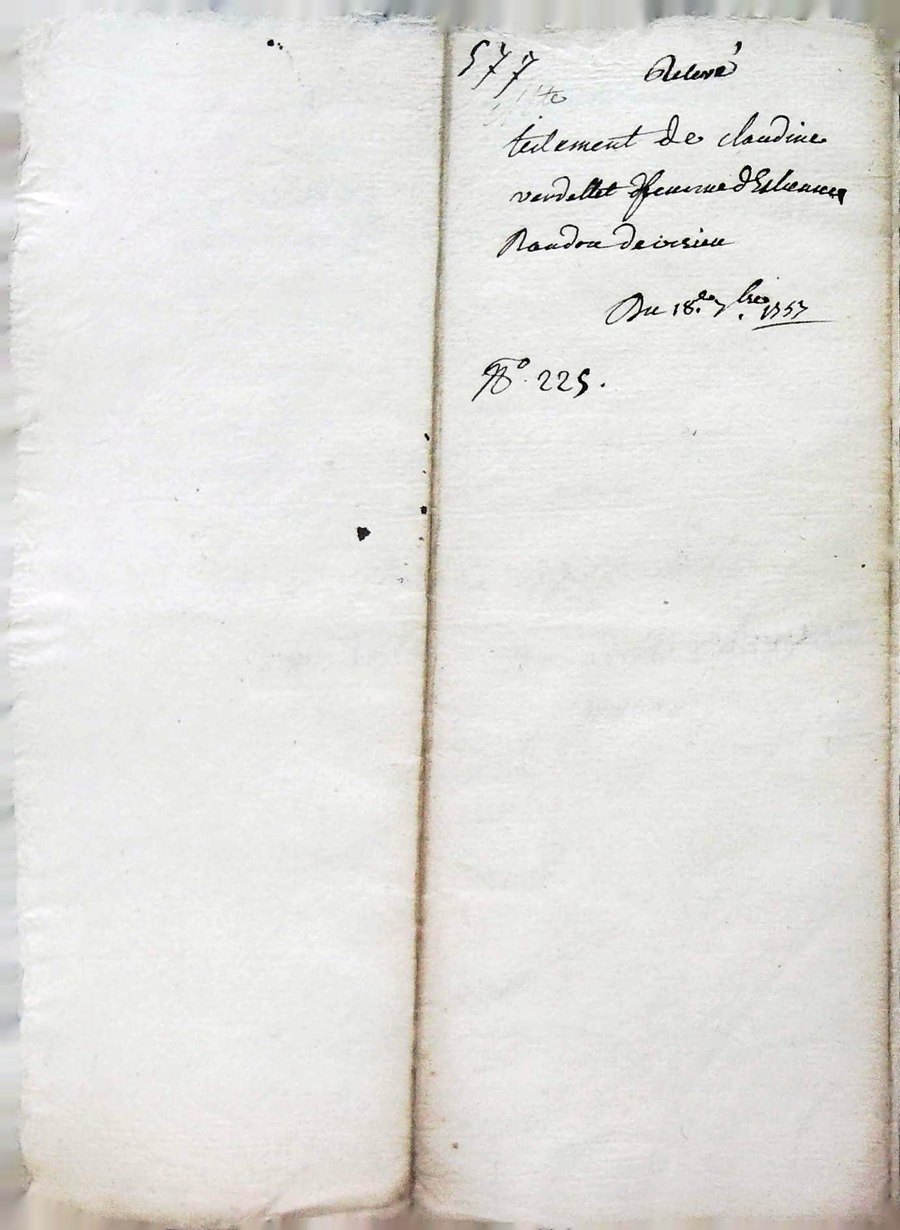 577 Relevé
testement de claudine
verdellet femme d'Estienne
Roudon de
Du 18.e 7.bre 1757
N.o 225.